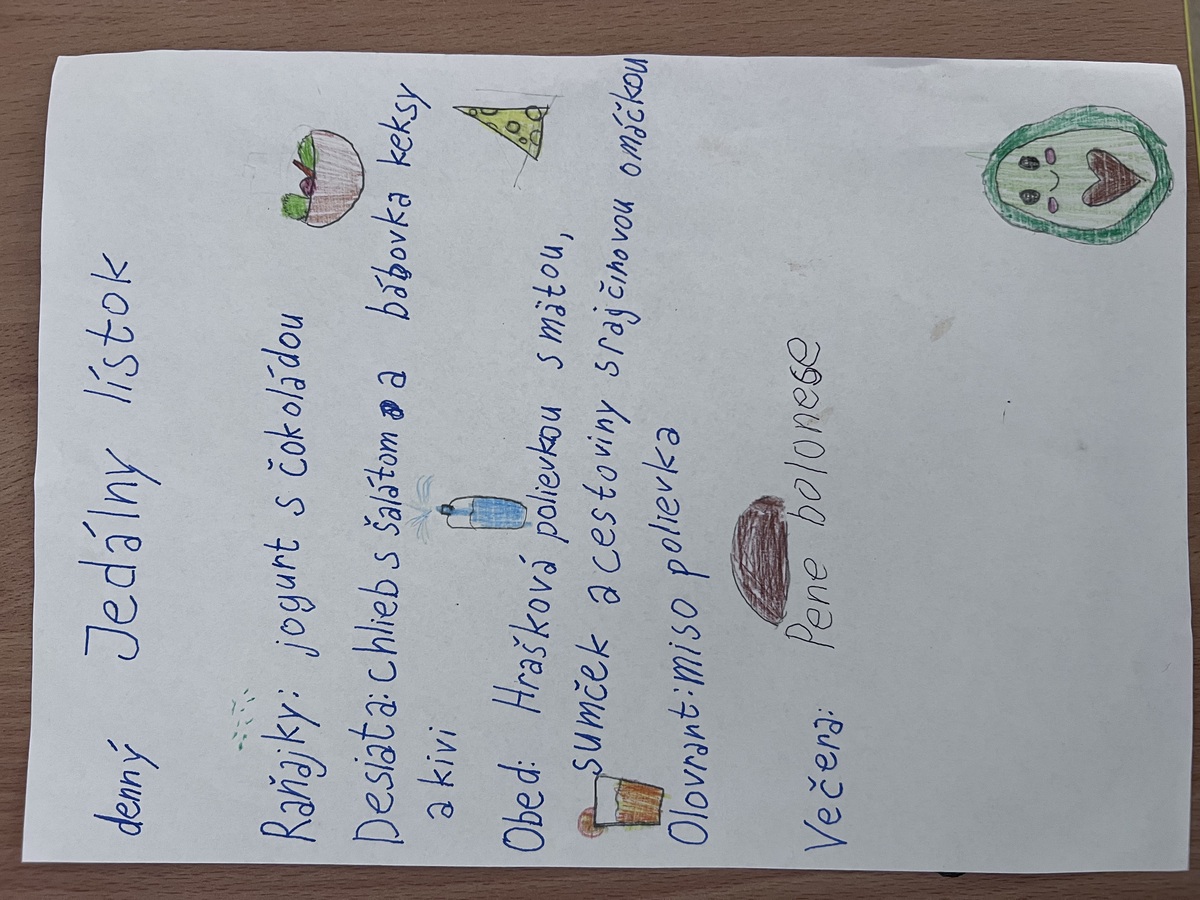 denný Jedálny lístok
Raňajky: jogurt s čokoládou
Desiata: chlieb s šalátom a bábovka keksy
a kivi
Obed: Hrašková polievkou s mätou,
sumček a cestoviny s rajčinovou omáčkou
Olovrant: miso polievka
Večera: Pene bolonese